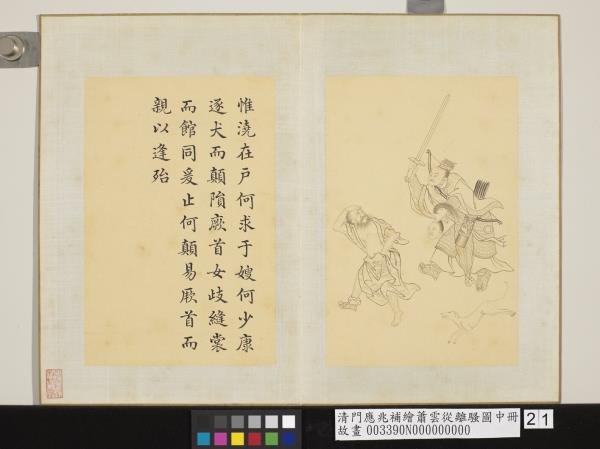 惟澆在戶何求于嫂何少康
逐犬而顛隕厥首女歧縫裳
而館同爰止何顛易厥首而
親以逢殆
清門應兆補繪蕭雲從離騷圖中冊
故畫 003390N000000000
21